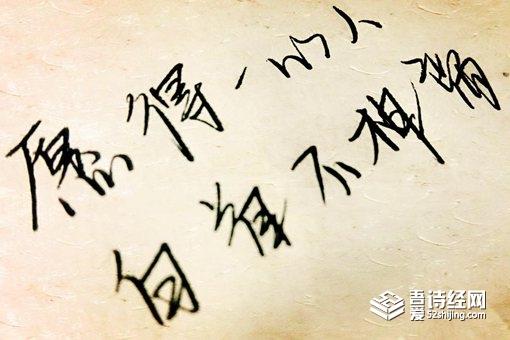 愿得一心人
白首不相离
吾爱诗经网
52shijing.com